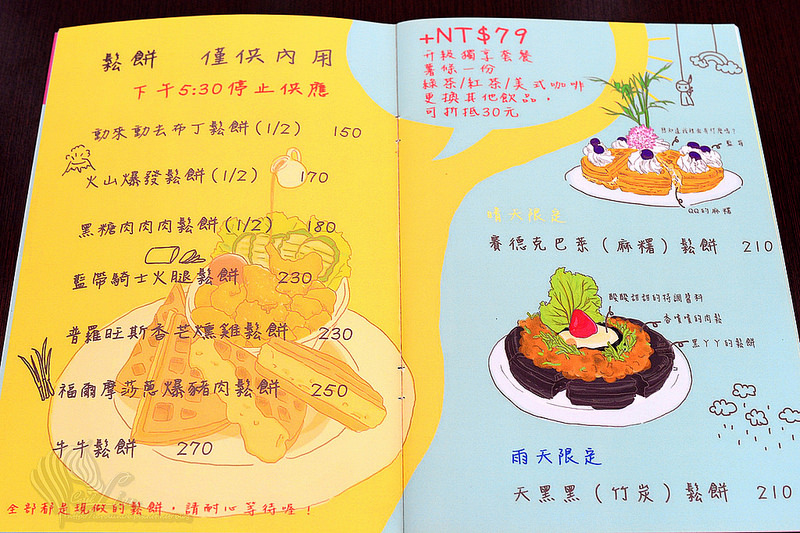 鬆餅 僅供內用
下午5:30停止供應
動來動去布丁鬆餅(1/2) 150
火山爆發鬆餅(1/2) 170
黑糖肉肉肉鬆餅(1/2) 180
藍帶騎士火腿鬆餅 230
普羅旺斯香芒燻雞鬆餅 230
福爾摩莎蔥爆豬肉鬆餅 250
牛牛鬆餅 270
全部都是現做的鬆餅，請耐心等待喔！
+NT$79
升級獨享套餐
薯條一份
綠茶/紅茶/美式咖啡
更換其他飲品，
可折抵30元
藍莓
QQ的麻糬
晴天限定
賽德克巴萊(麻糬)鬆餅 210
酸酸甜甜的特調醬料
香噴噴的肉鬆
黑丫丫的鬆餅
雨天限定
天黑黑(竹炭)鬆餅 210